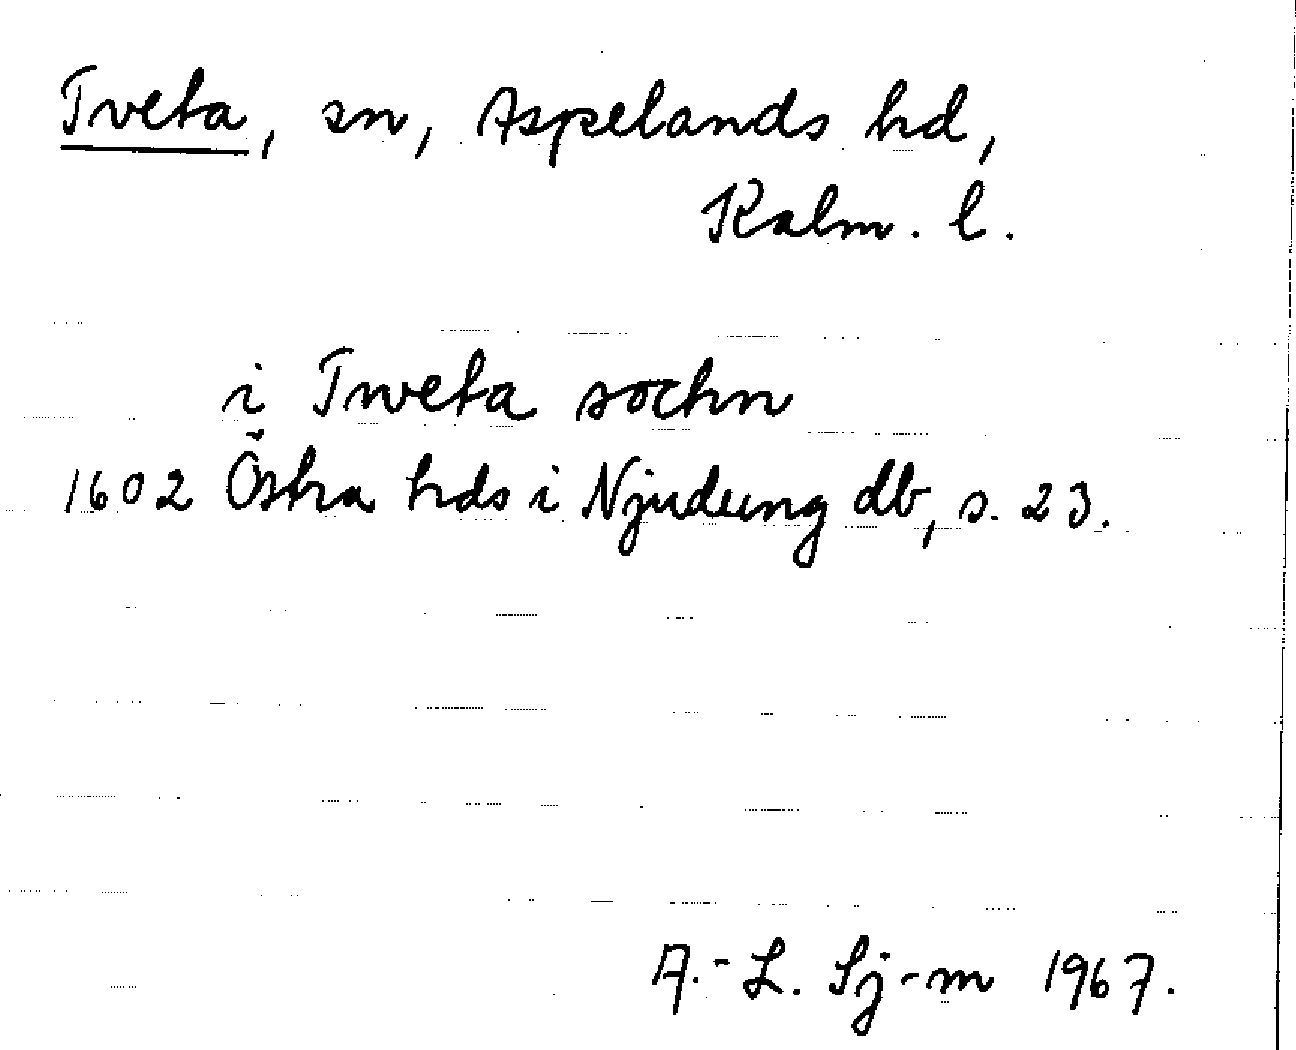 Tveta, sn, Aspelands hd,
Kalm. l.
i Tweta sochn
1602 Östra hds i Njudung db, s. 23.
A.-L. Sj-m 1967.